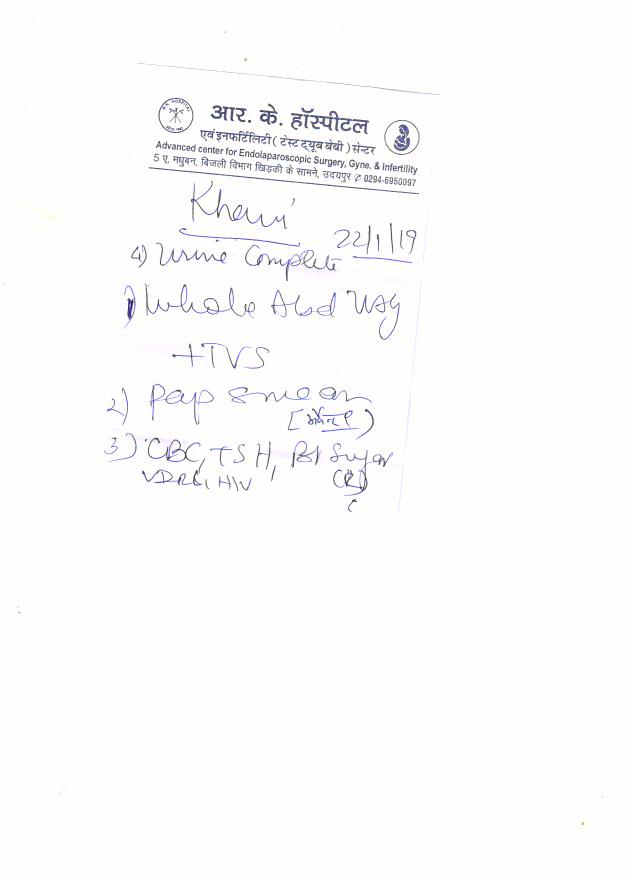 R.K. HOSPITAL
आर. के. हॉस्पीटल
एवं इनफर्टिलिटी ( टेस्ट ट्यूब बेबी ) सेन्टर
Advanced center for Endolaparoscopic Surgery, Gyne. & Infertility
5 ए, मधुबन, बिजली विभाग खिड़की के सामने, उदयपुर ✆ 0294-6950097
22/1/19
4) Urine Complete
1) Whole Abd USG
+TVS
2) Pap smear
3) CBC, TSH, Bl Sugar
VDRL, HIV (R)